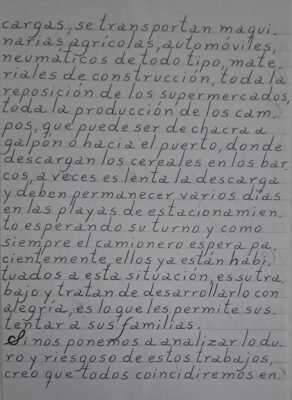 cargas, se transportan maqui-
narias agrícolas, automóviles,
neumáticos de todo tipo, mate-
riales de construcción, toda la
reposición de los supermercados,
toda la producción de los cam-
pos, que puede ser de chacra a
galpón o hacia el puerto, donde
descargan los cereales en los bar-
cos, a veces es lenta la descarga
y deben permanecer varios días
en las playas de estacionamien-
to esperando su turno y como
siempre el camionero espera pa-
cientemente, ellos ya están habi-
tuados a esta situación, es su tra-
bajo y tratan de desarrollarlo con
alegría, es lo que les permite sus-
tentar a sus familias.
Si nos ponemos a analizar lo du-
ro y riesgoso de estos trabajos,
creo que todos coincidiremos en